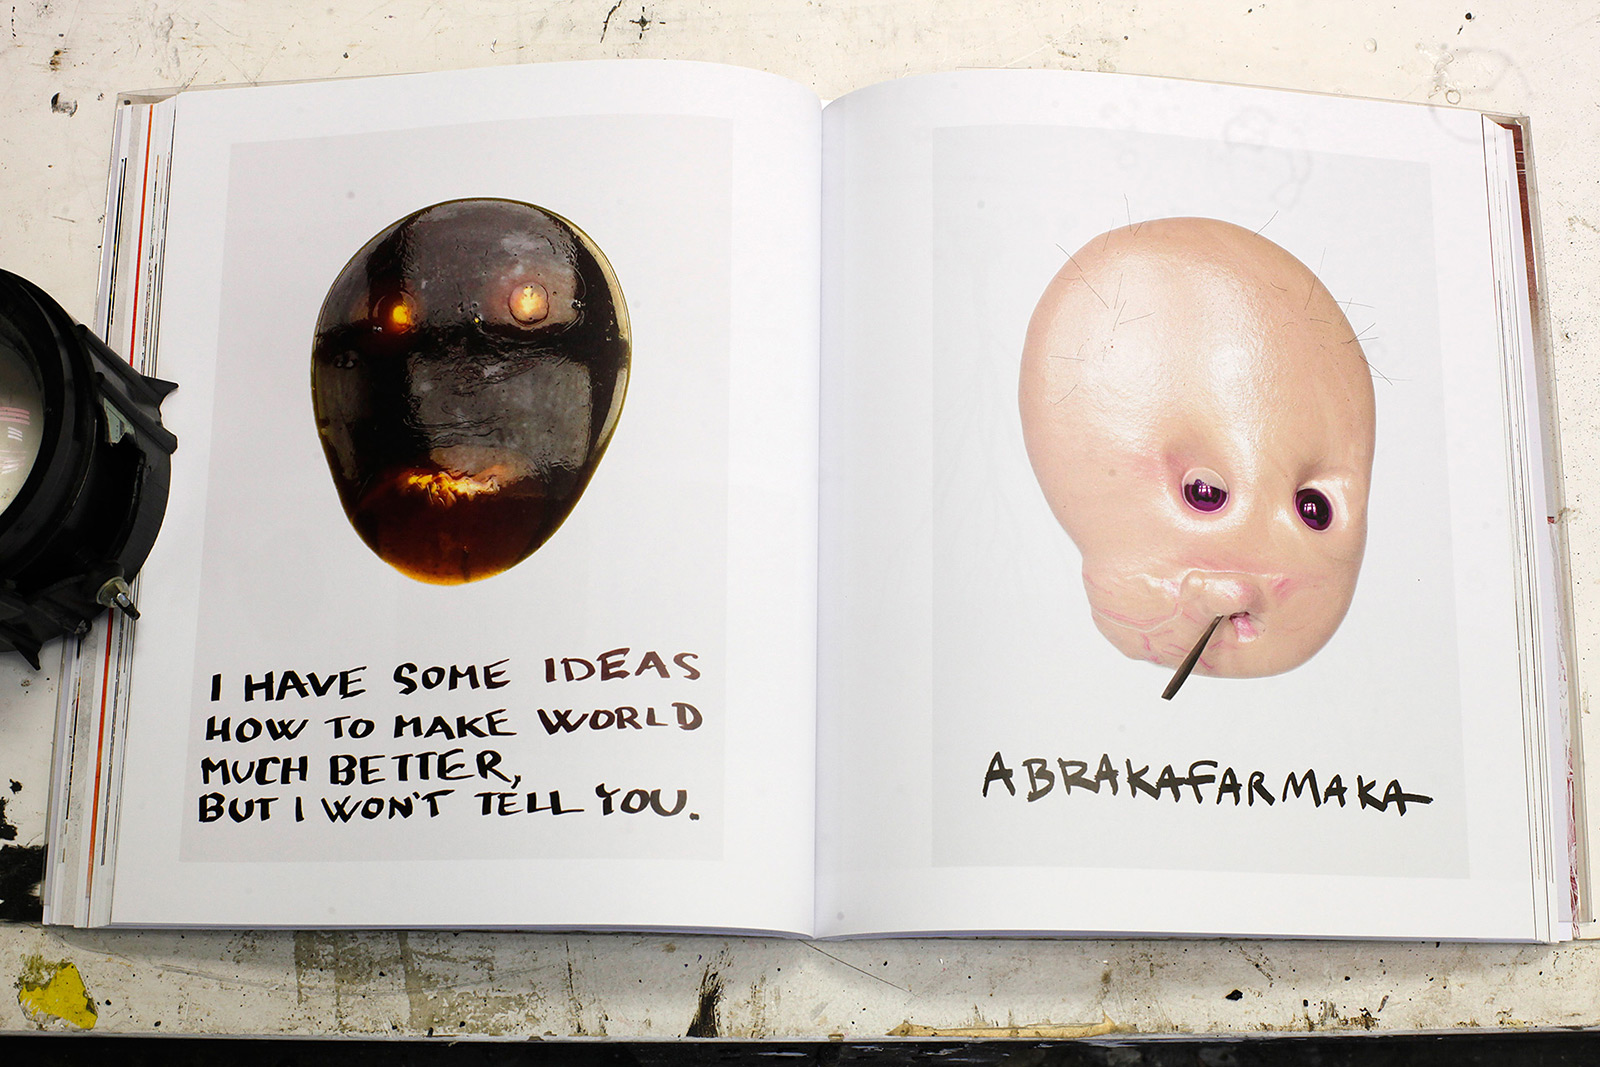 I HAVE SOME IDEAS
HOW TO MAKE WORLD
MUCH BETTER,
BUT I WON'T TELL YOU.
ABRAKAFARMAKA